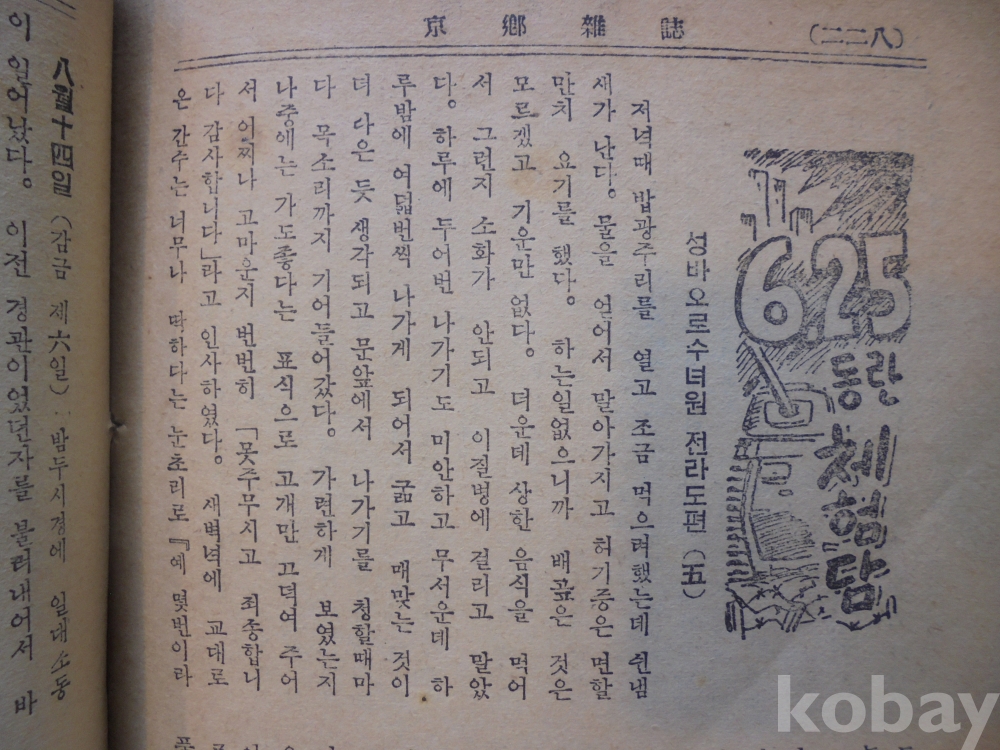 京鄕雜誌
(二二八)
6.25
동란
체험담
성바오로수녀원 전라도편 (五)
저녁때 밥광주리를 열고 조금 먹으려했는데 쉰냄
새가 난다。물을 얻어서 말아가지고 허기증은 면할
만치 요기를 했다。 하는일없으니까 배곺은 것은
모르겠고 기운만 없다。 더운데 상한 음식을 먹어
서 그런지 소화가 안되고 이질병에 걸리고 말았
다。하루에 두어번 나가기도 미안하고 무서운데 하
루밤에 여덟번씩 나가게 되어서 굶고 매맞는 것이
더 나은 듯 생각되고 문앞에서 나가기를 청할때마
다 목소리까지 기어들어갔다。 가련하게 보였는지
나중에는 가도좋다는 표식으로 고개만 끄덕여 주어
서 어찌나 고마운지 번번히 「못주무시고 죄송합니
다 감사합니다」라고 인사하였다。 새벽녁에 교대로
온 간수는 너무나 딱하다는 눈초리로 『예 몇번이라
八월十四일 (감금 제六일) 밤두시경에 일대소동
이 일어났다。 이전 경관이었던자를 불러내어서 바
kobay